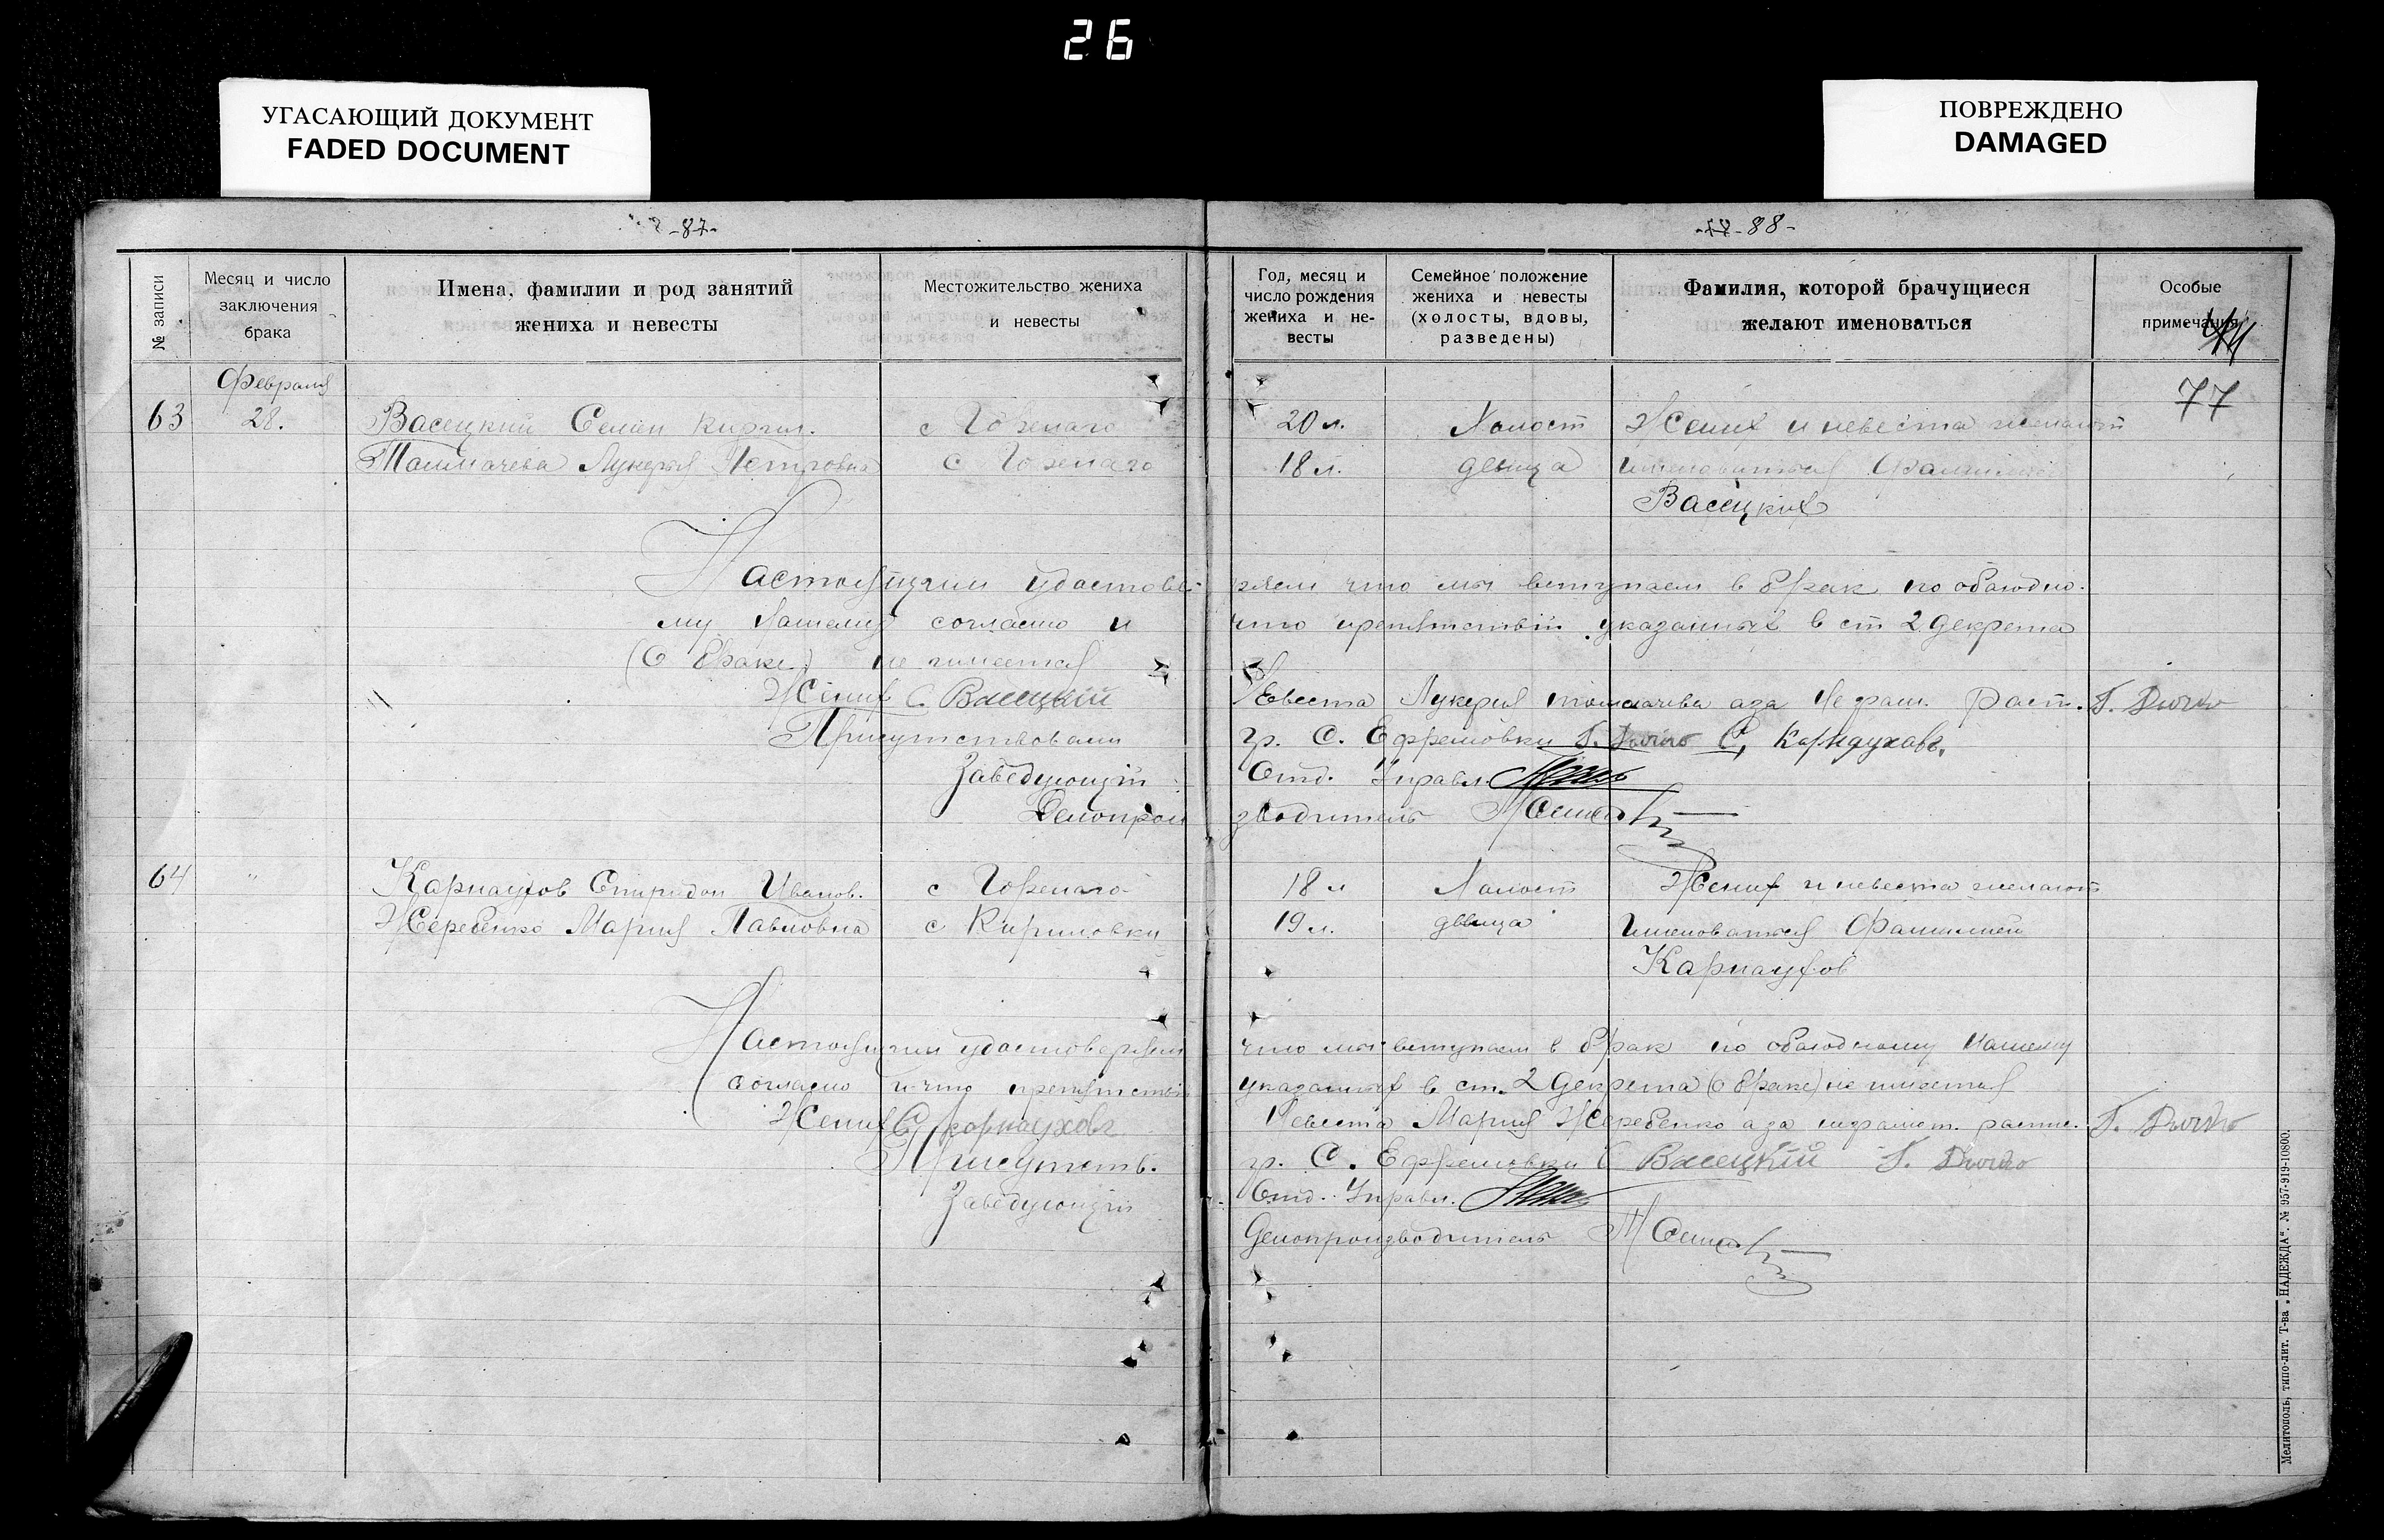 26
УГАСАЮЩИЙ ДОКУМЕНТ
FADED DOCUMENT
ПОВРЕЖДЕНО
DAMAGED
-87-
-88-
№ записи
Месяц и число заключения брака
Имена, фамилии и род занятий жениха и невесты
Местожительство жениха и невесты
Год, месяц и число рождения жениха и невесты
Семейное положение жениха и невесты (холосты, вдовы, разведены)
Фамилия, которой брачущиеся желают именоваться
Особые примечания
77
Февраля
63 28. Васецкий Семен Кирил. с Горелаго 20 л. Холост Жених и невеста желают
Толмачева Лукерья Петровна с Горелаго 18 л. девица именоваться Фамилией
Васецких
Настоящим удостоверяем что мы вступаем в брак по обоюдно-
му нашему согласию и что препятствий указанных в ст 2 декрета
(О браке) не имеется
Жених С Васецкий Невеста Лукерья Толмачева а за Неграм. Расп.
Присутствовали гр. С. Ефремовки С. Карнауховъ.
Заведующий Отд. Управл.
Делопроизводитель
64 " Карнаухов Спиридон Иванов. с Горелаго 18 л Холост Жених и невеста желают
Жеребенко Мария Павловна с Кириловки 19 л. девица именоваться Фамилией
Карнаухов
Настоящим удостоверяем что мы вступаем в брак по обоюдному нашему
согласию и что препятствий указанных в ст. 2 декрета (о браке) не имеется
Жених С Карнауховъ Невеста Мария Жеребенко а за неграмот. распис.
Присутств. гр. С. Ефремовки С Васецкий
Заведующий Отд. Управл.
Делопроизводитель
Мелитополь, типо-лит. Т-ва „НАДЕЖДА“. № 957-919-10800.